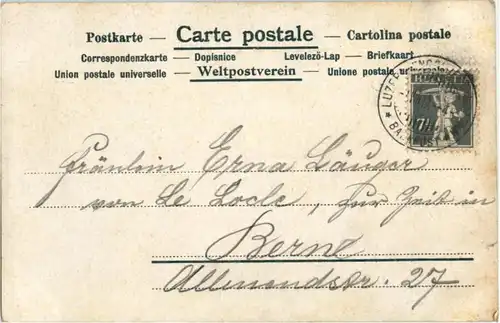 Postkarte — Carte postale — Cartolina postale
Correspondenzkarte — Dopisnice Levelező-Lap — Briefkaart
Union postale universelle — Weltpostverein — Unione postale
* LUZERN
7½
Fräulein Erna Läuger
von Le Locle, zur Zeit in
Berne
Allmendstr. 27